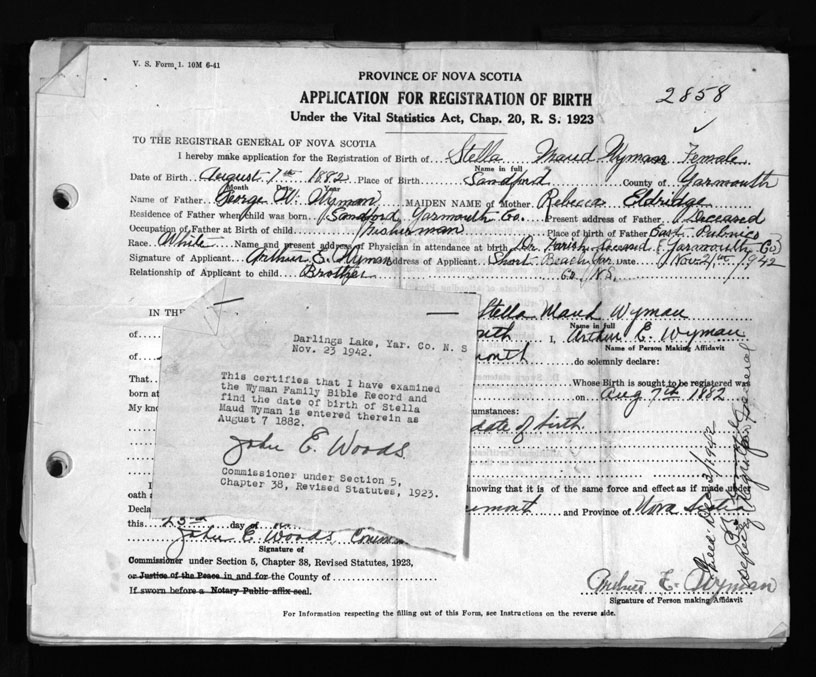 V. S. Form 1. 10M 6-41
PROVINCE OF NOVA SCOTIA
APPLICATION FOR REGISTRATION OF BIRTH
2858
Under the Vital Statistics Act, Chap. 20, R. S. 1923
TO THE REGISTRAR GENERAL OF NOVA SCOTIA
I hereby make application for the Registration of Birth of Stella Maud Wyman Female
Name in full
Date of Birth August 7th 1882 Place of Birth Sandford County of Yarmouth
Month Date Year
Name of Father George W. Wyman MAIDEN NAME of Mother Rebecca Eldridge
Residence of Father when child was born Sandford Yarmouth Co. Present address of Father Deceased
Occupation of Father at Birth of child Fisherman Place of birth of Father East Pubnico
Race White Name and present address of Physician in attendance at birth Dr. (Yarmouth Co)
Signature of Applicant Arthur E. Wyman Address of Applicant Short Beach Yar. Date Nov 21st 1942
Relationship of Applicant to child Brother Co. N.S.
IN THE Stella Maud Wyman
Name in full
of I, Arthur E. Wyman
Name of Person Making Affidavit
of do solemnly declare:
That Whose Birth is sought to be registered was
born at on Aug 7th 1882
My circumstances:
date of birth
Darlings Lake, Yar. Co. N. S
Nov. 23 1942.
This certifies that I have examined
the Wyman Family Bible Record and
find the date of birth of Stella
Maud Wyman is entered therein as
August 7 1882.
John E. Woods
Commissioner under Section 5,
Chapter 38, Revised Statutes, 1923.
knowing that it is of the same force and effect as if made under
oath
Decla and Province of Nova Scotia
this 23rd day of
John E. Woods
Signature of
Commissioner under Section 5, Chapter 38, Revised Statutes, 1923,
or Justice of the Peace in and for the County of
If sworn before a Notary Public affix seal.
Arthur E. Wyman
Signature of Person making Affidavit
For Information respecting the filling out of this Form, see Instructions on the reverse side.
Filed Dec 3/1942
Deputy Registrar General